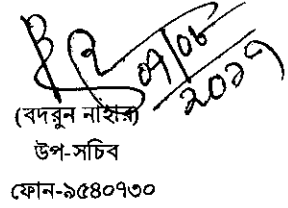 ০৭/০৮
২০১৭
(বদরুন নাহার)
উপ-সচিব
ফোন-৯৫৪০৭৩০